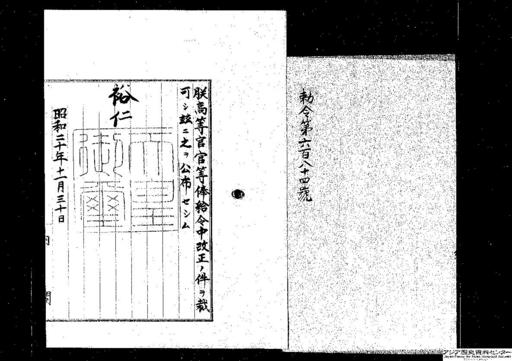 勅令第六百八十四號
朕高等官官等俸給令中改正ノ件ヲ裁
可シ茲ニ之ヲ公布セシム
裕仁
天皇
御璽
昭和二十年十一月三十日
内閣
アジア歴史資料センター